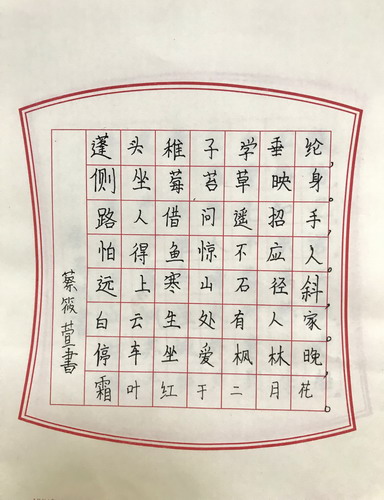 蓬头稚子学垂纶,
侧坐莓苔草映身。
路人借问遥招手,
怕得鱼惊不应人。
远上寒山石径斜,
白云生处有人家。
停车坐爱枫林晚,
霜叶红于二月花。
蔡筱萱書